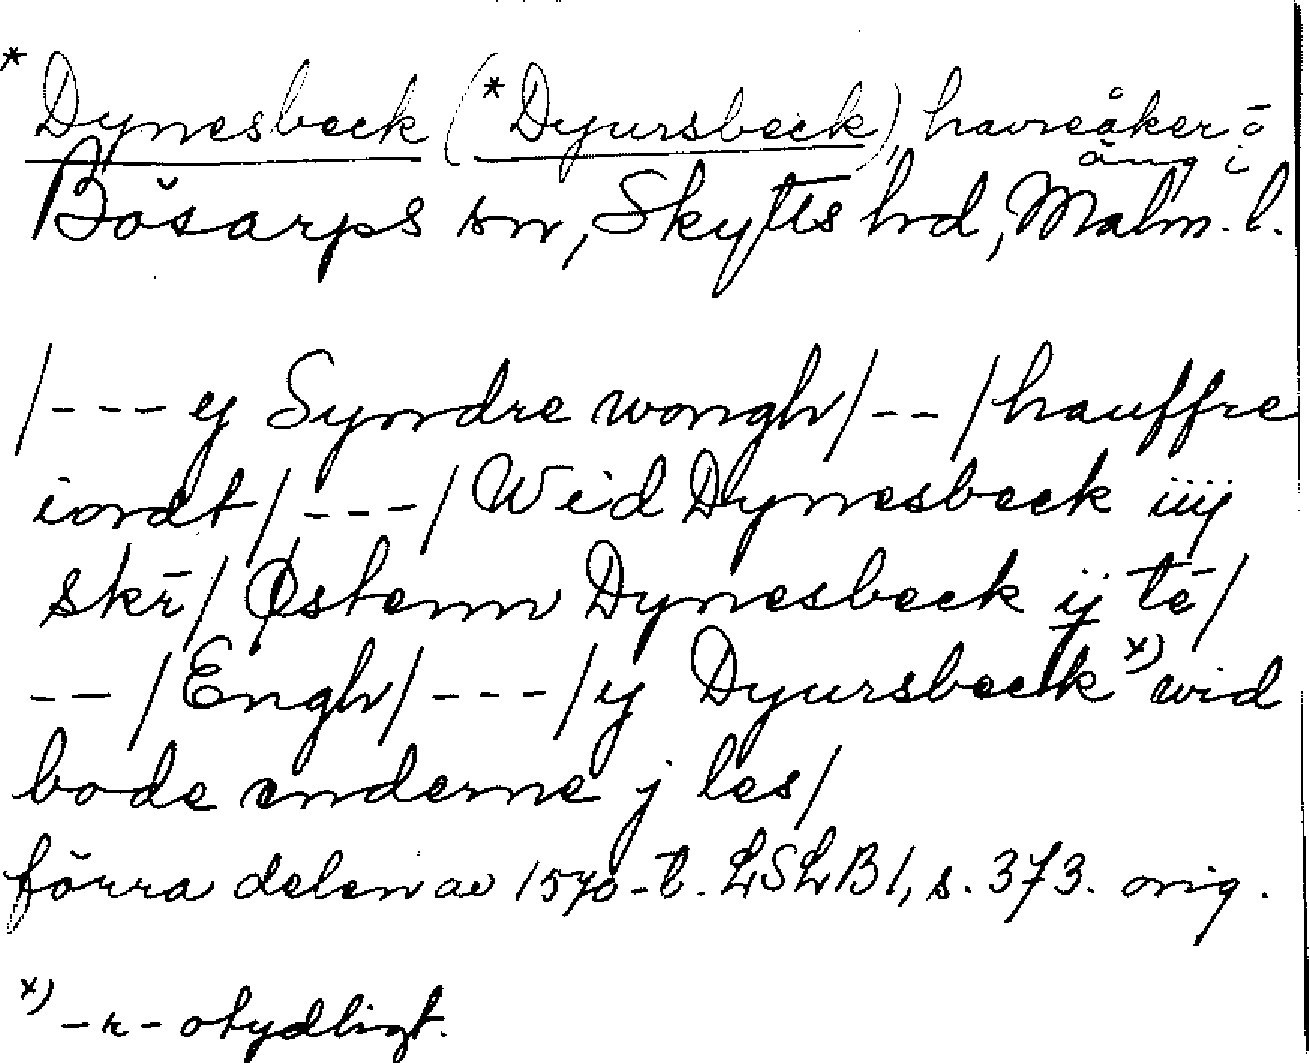 * Dynesbeck (* Dyursbeck), havreåker o.
äng i
Bösarps sn, Skytts hd, Malm. l.
/--- y Syndre wongh/--/hauffre
iordt/---/Wid Dynesbeck iiij
skr̄/ Østenn Dynesbeck ij tē/
--/Engh/---/y Dyursbeck x) wid
bode enderne j les/
förra delen av 1570-t. LSLB1, s. 373. orig.
x) -r- otydligt.